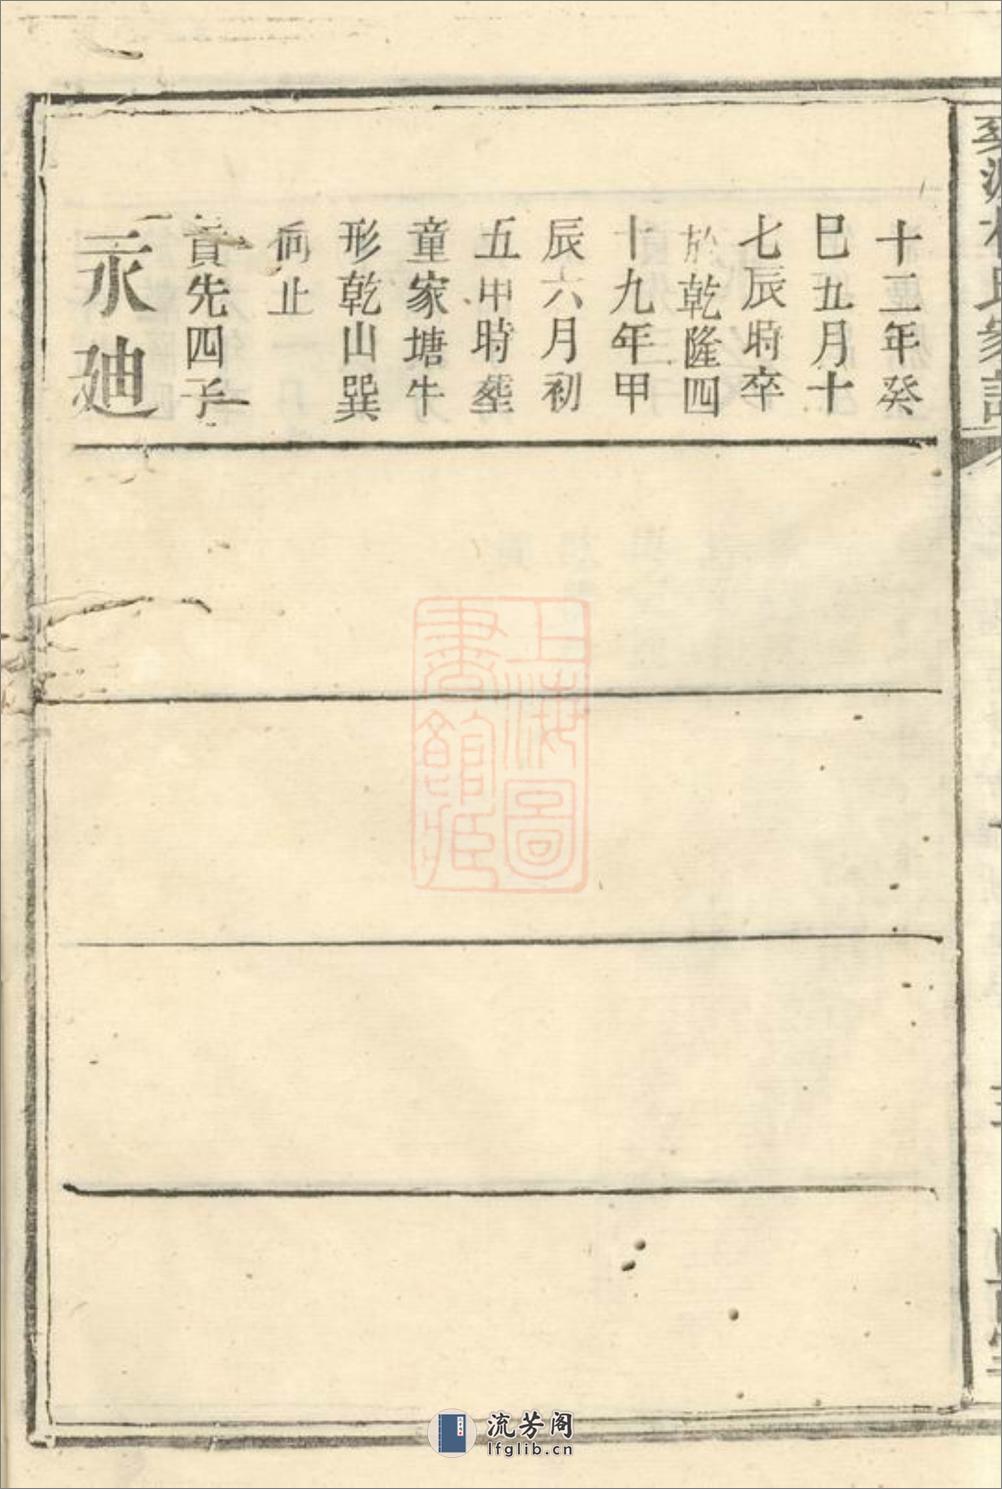 十二年癸
巳五月十
七辰時卒
於乾隆四
十九年甲
辰六月初
五申時塟
童家塘牛
形乾山巽
向止
貢先四子
永廸
上海圖
書館藏
流芳阁
lfglib.cn